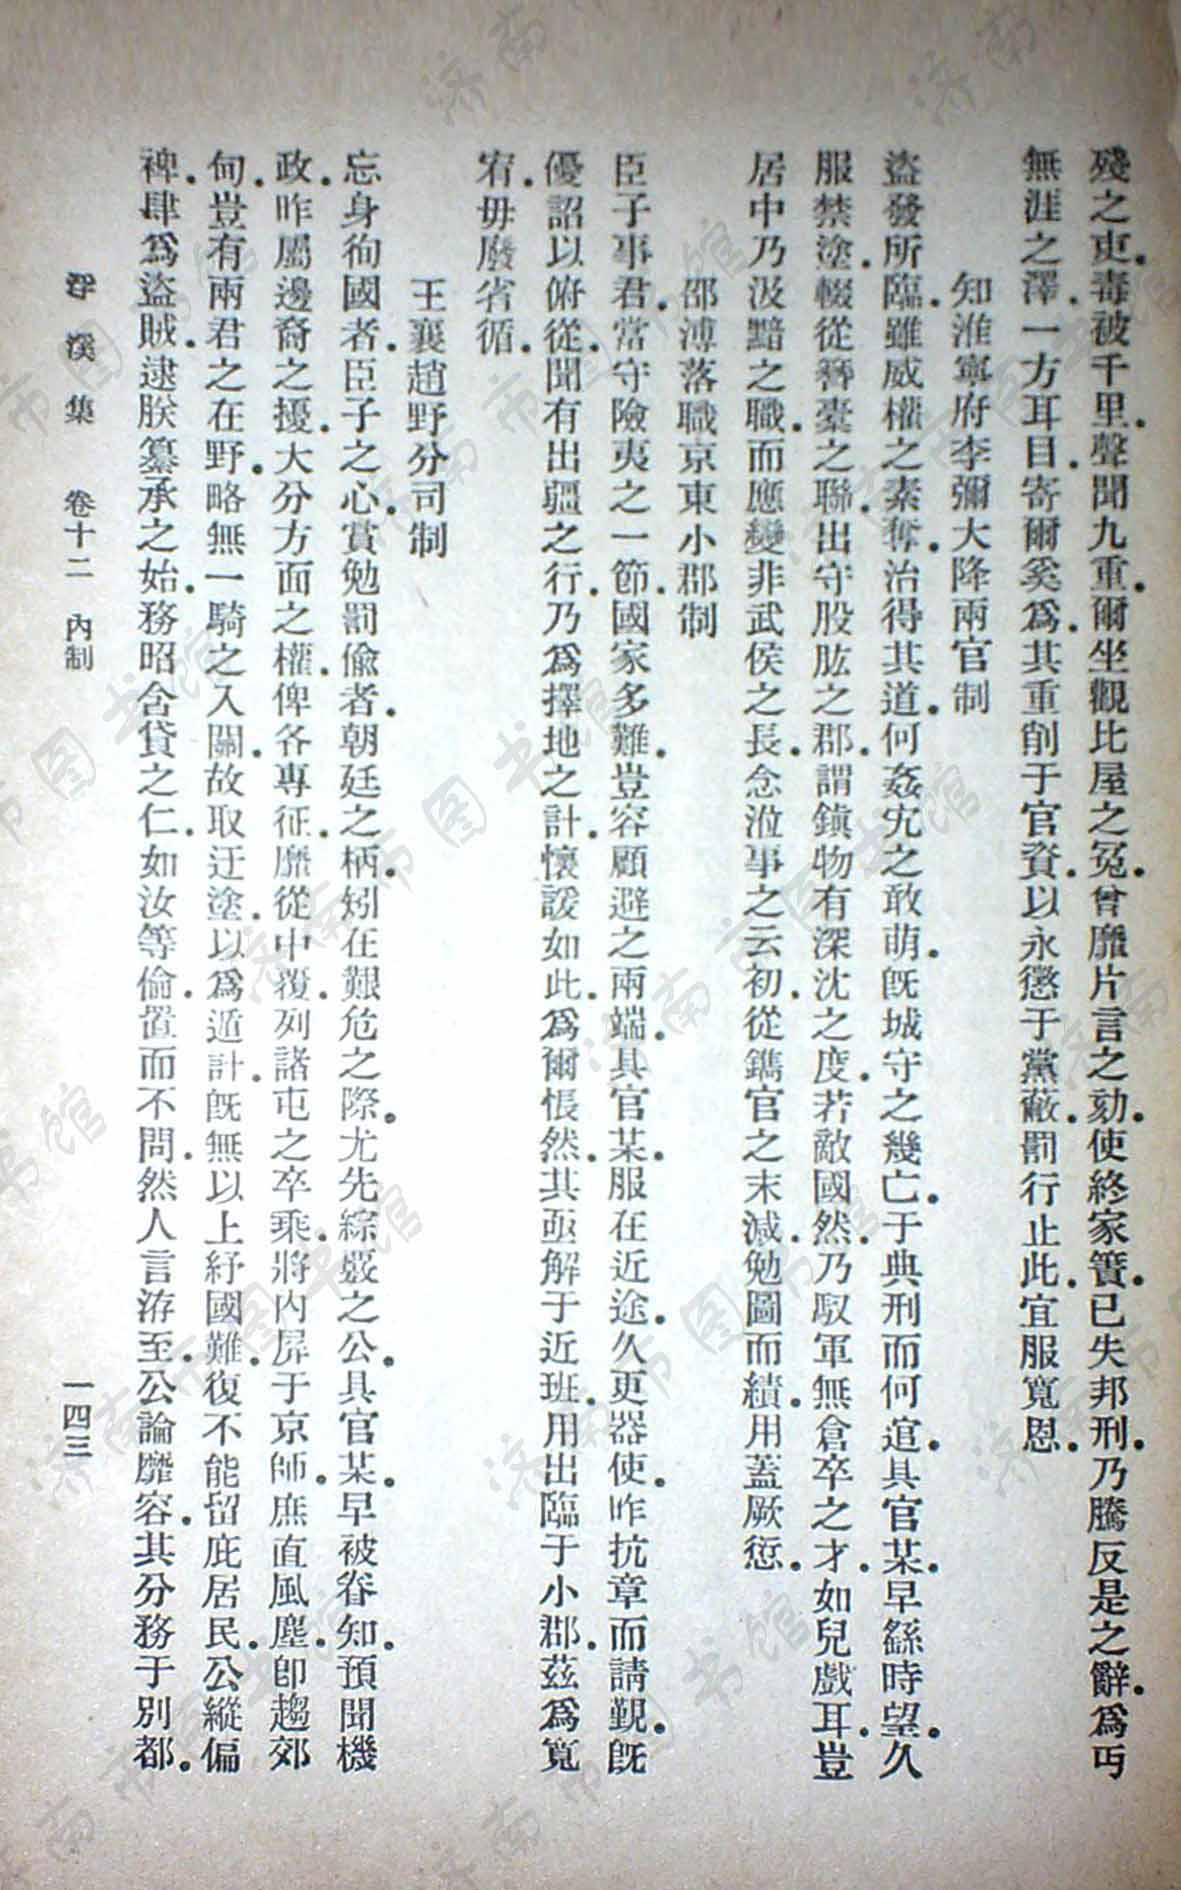 殘之吏.毒被千里.聲聞九重.爾坐觀比屋之冤.曾靡片言之劾.使終家簀.已失邦刑.乃騰反是之辭.爲丐
無涯之澤.一方耳目.寄爾奚爲.其重削于官資.以永懲于黨蔽.罰行止此.宜服寬恩.
知淮寧府李彌大降兩官制
盜發所臨.雖威權之素奪.治得其道.何姦宄之敢萌.旣城守之幾亡.于典刑而何逭.具官某.早繇時望.久
服禁塗.輟從簪橐之聯.出守股肱之郡.謂鎭物有深沈之度.若敵國然.乃馭軍無倉卒之才.如兒戲耳.豈
居中乃汲黯之職.而應變非武侯之長.念涖事之云初.從鐫官之末減.勉圖而績.用蓋厥愆.
邵溥落職京東小郡制
臣子事君.當守險夷之一節.國家多難.豈容顧避之兩端.具官某.服在近途.久更器使.昨抗章而請覲.旣
優詔以俯從.聞有出疆之行.乃爲擇地之計.懷諼如此.爲爾悵然.其亟解于近班.用出臨于小郡.茲爲寬
宥.毋廢省循.
王襄趙野分司制
忘身徇國者.臣子之心.賞勉罰偸者.朝廷之柄.矧在艱危之際.尤先綜覈之公.具官某.早被眷知.預聞機
政.昨屬邊裔之擾.大分方面之權.俾各專征.靡從中覆.列諸屯之卒乘.將內屛于京師.庶直風塵.卽趨郊
甸.豈有兩君之在野.略無一騎之入關.故取迂塗.以爲遁計.旣無以上紓國難.復不能留庇居民.公縱偏
裨.肆爲盜賊.逮朕纂承之始.務昭含貸之仁.如汝等偷.置而不問.然人言洊至.公論靡容.其分務于別都.
浮溪集 卷十二 內制 一四三